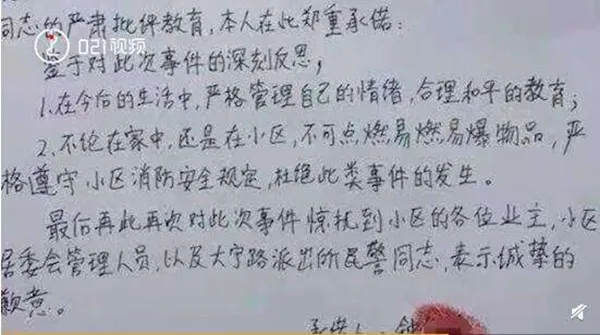 021视频
同志的严肃批评教育,本人在此郑重承诺:
鉴于对此次事件的深刻反思;
1.在今后的生活中,严格管理自己的情绪,合理和平的教育;
2.不论在家中,还是在小区,不可点燃易燃易爆物品,严
格遵守小区消防安全规定,杜绝此类事件的发生。
最后再此再次对此次事件惊扰到小区的各位业主,小区
居委会管理人员,以及大宁路派出所民警同志,表示诚挚的
歉意。
承诺人: